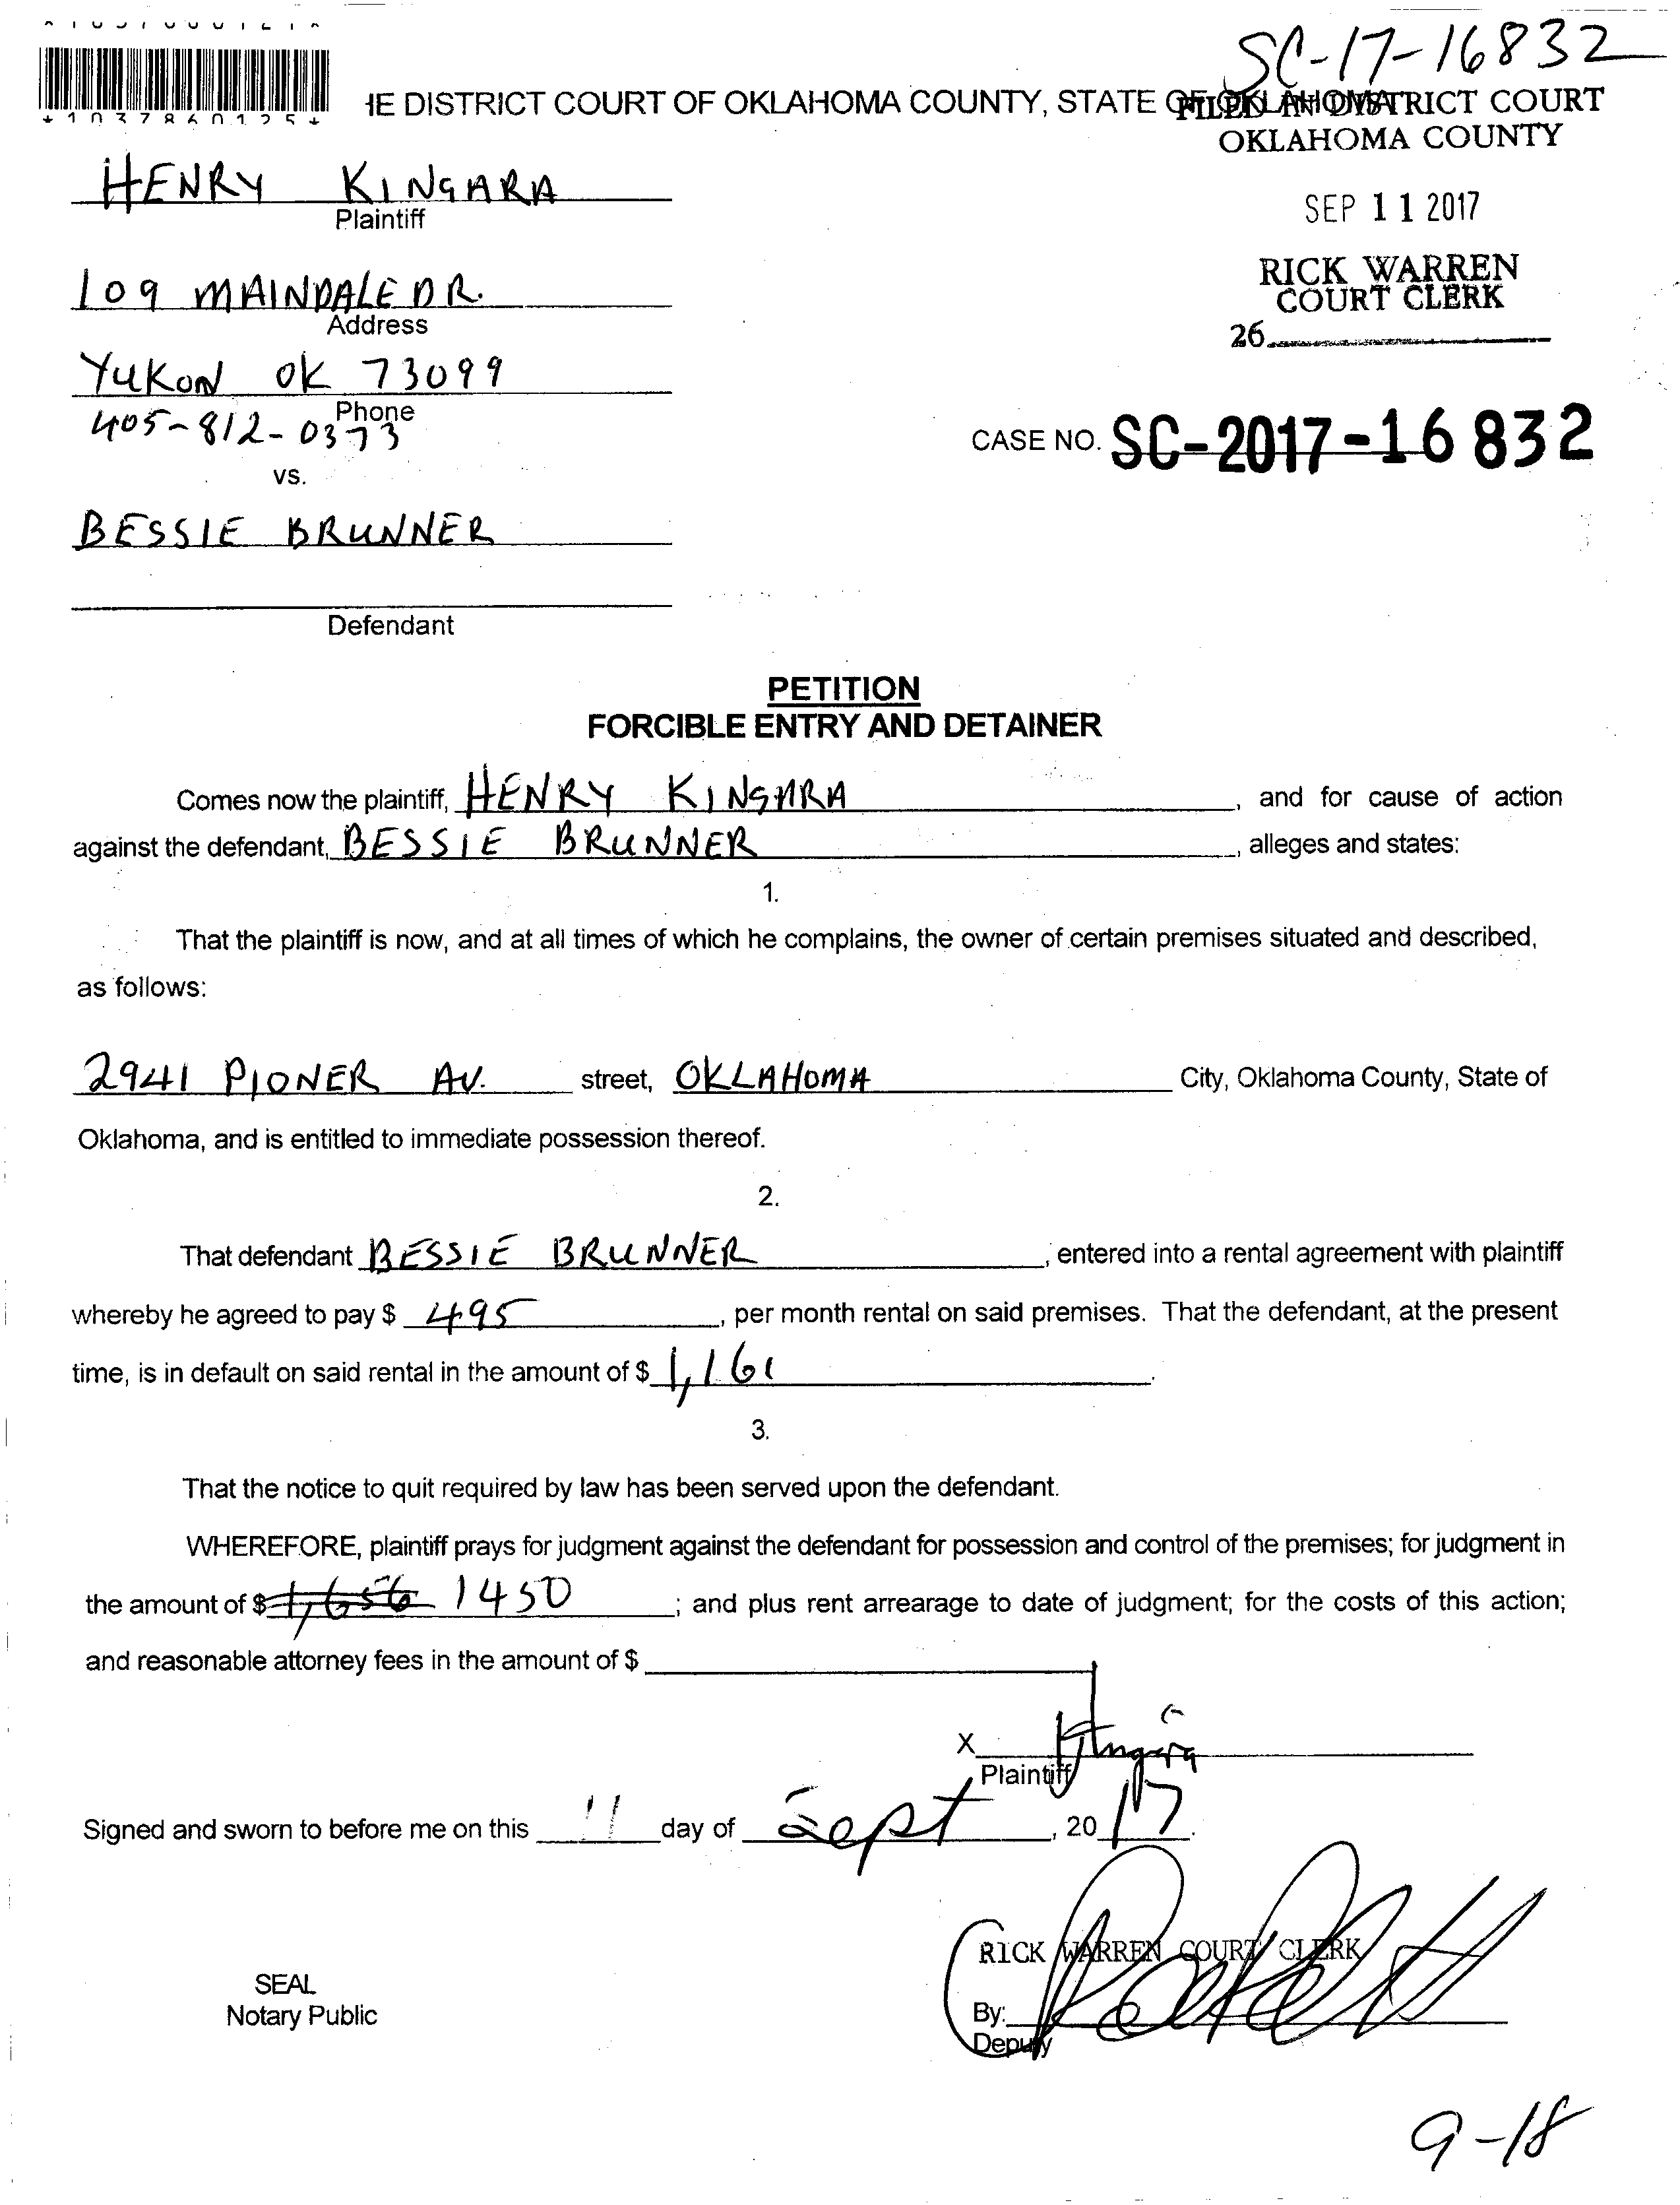 SC-17-16832
*1037860125*
HE DISTRICT COURT OF OKLAHOMA COUNTY, STATE OF OKLAHOMA
FILED IN DISTRICT COURT
OKLAHOMA COUNTY
HENRY KINGARA
Plaintiff
SEP 11 2017
RICK WARREN
COURT CLERK
109 MAINDALE DR.
Address
26
YUKON OK 73099
Phone
405-812-0373
CASE NO. SC-2017-16832
vs.
BESSIE BRUNNER
Defendant
PETITION
FORCIBLE ENTRY AND DETAINER
Comes now the plaintiff, HENRY KINGARA, and for cause of action
against the defendant, BESSIE BRUNNER, alleges and states:
1.
That the plaintiff is now, and at all times of which he complains, the owner of certain premises situated and described,
as follows:
2941 PIONER AV. street, OKLAHOMA City, Oklahoma County, State of
Oklahoma, and is entitled to immediate possession thereof.
2.
That defendant BESSIE BRUNNER, entered into a rental agreement with plaintiff
whereby he agreed to pay $ 495, per month rental on said premises. That the defendant, at the present
time, is in default on said rental in the amount of $ 1,161.
3.
That the notice to quit required by law has been served upon the defendant.
WHEREFORE, plaintiff prays for judgment against the defendant for possession and control of the premises; for judgment in
the amount of $ 1,656 1450; and plus rent arrearage to date of judgment; for the costs of this action;
and reasonable attorney fees in the amount of $
X Kingara
Plaintiff
Signed and sworn to before me on this 11 day of Sept, 2017.
RICK WARREN COURT CLERK
SEAL
Notary Public
By:
Deputy
9-18